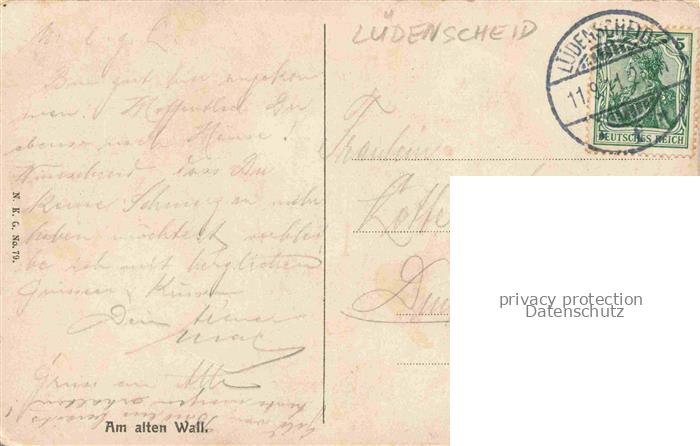 M. l. g. L.
Bin gut hier angekom
men. Hoffentlich Du
ebenso nach Hause!
Wünschend dass Du
keine Schmerzen mehr
haben möchtest verblei
be ich mit herzlichen
Grüssen u. Küssen
Dein
Max
Gruss an
heute morgen erhalten
Am alten Wall.
N. K. G. No. 79.
LÜDENSCHEID
LÜDENSCHEID
11.9.11
5
DEUTSCHES REICH
Fräulein
Lotte
privacy protection
Datenschutz